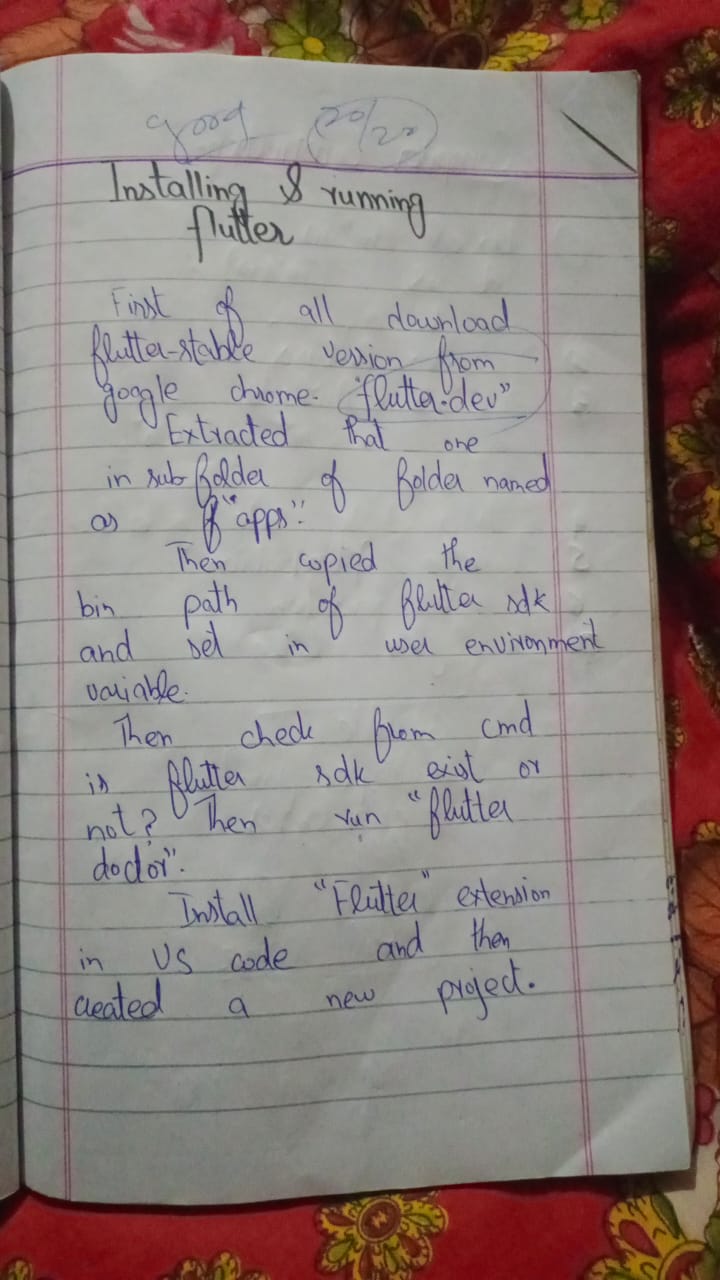 good 20/20
Installing & running
flutter
First of all download
flutter-stable version from
google chrome. "flutter.dev"
Extracted that one
in sub folder of folder named
as "apps".
Then copied the
bin path of flutter sdk
and set in user environment
variable.
Then check from cmd
is flutter sdk exist or
not? Then run "flutter
doctor".
Install "Flutter" extension
in VS code and then
created a new project.